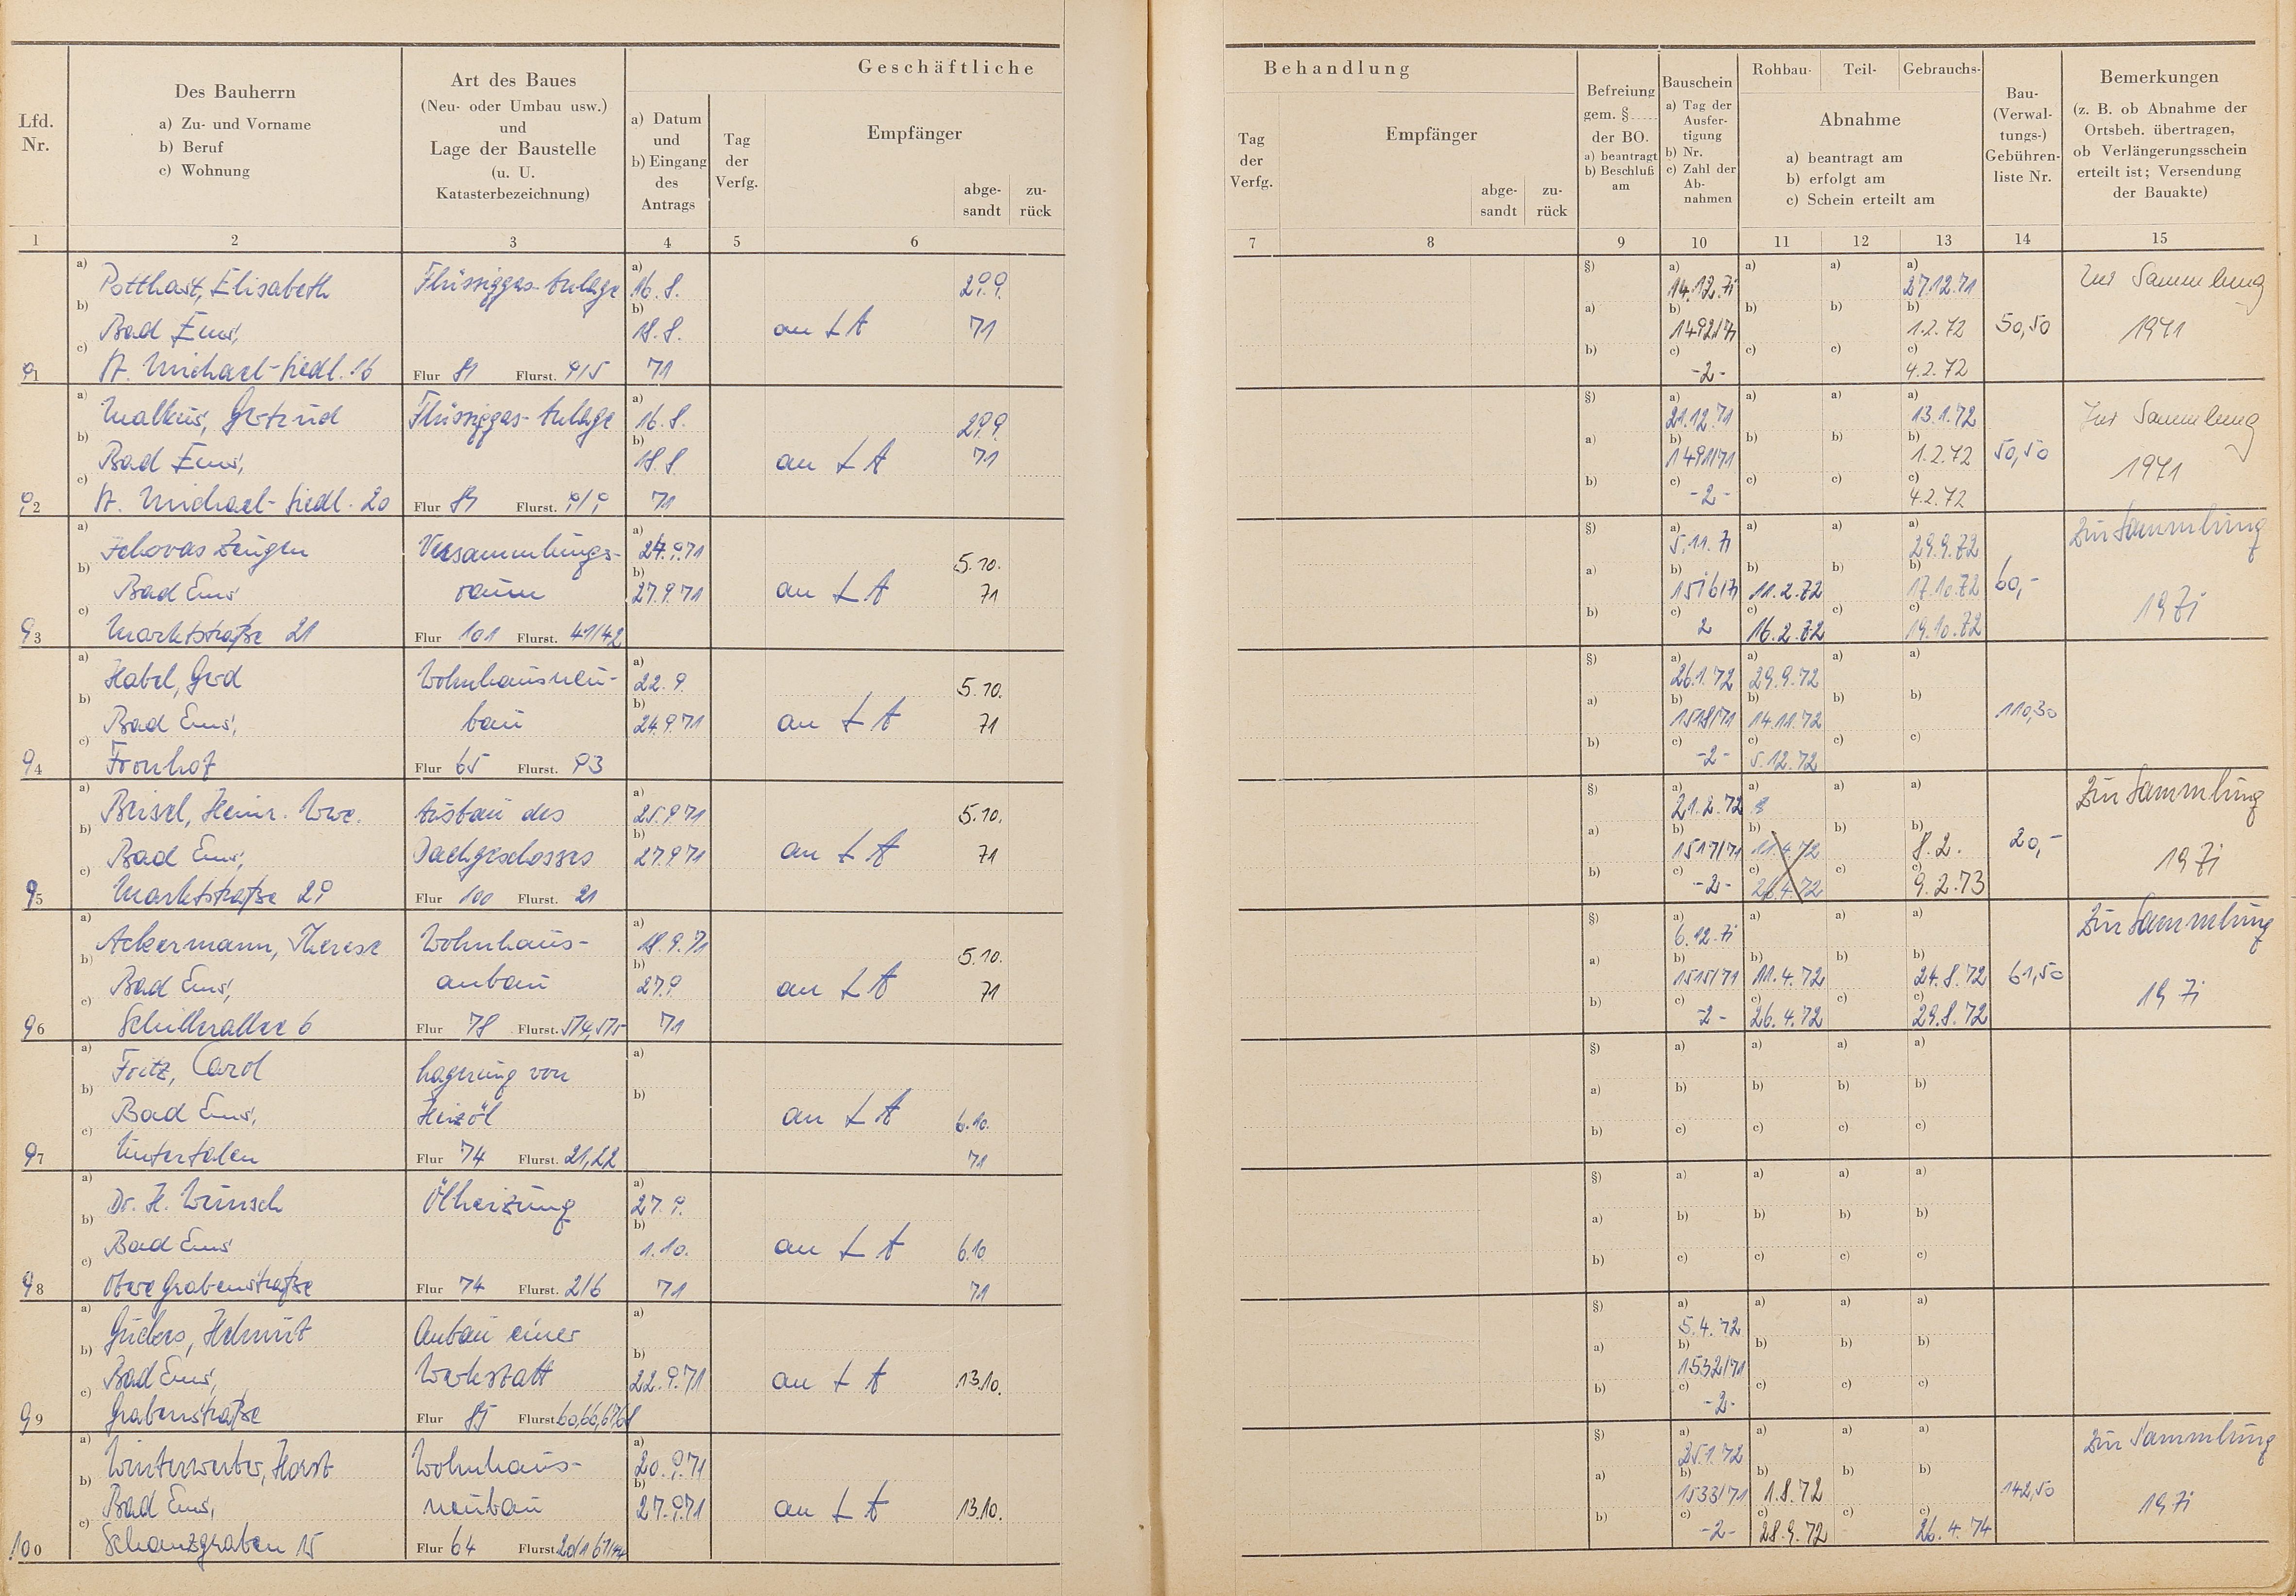 Geschäftliche Behandlung
Lfd. Nr.
Des Bauherrn
a) Zu- und Vorname
b) Beruf
c) Wohnung
Art des Baues
(Neu- oder Umbau usw.)
und
Lage der Baustelle
(u. U.
Katasterbezeichnung)
a) Datum
und
b) Eingang
des
Antrags
Tag
der
Verfg.
Empfänger
abge-
sandt
zu-
rück
Tag
der
Verfg.
Empfänger
abge-
sandt
zu-
rück
Befreiung
gem. §
der BO.
a) beantragt
b) Beschluß
am
Bauschein
a) Tag der
Ausfer-
tigung
b) Nr.
c) Zahl der
Ab-
nahmen
Rohbau- Teil- Gebrauchs-
Abnahme
a) beantragt am
b) erfolgt am
c) Schein erteilt am
Bau-
(Verwal-
tungs-)
Gebühren-
liste Nr.
Bemerkungen
(z. B. ob Abnahme der
Ortsbeh. übertragen,
ob Verlängerungsschein
erteilt ist; Versendung
der Bauakte)
1 2 3 4 5 6 7 8 9 10 11 12 13 14 15
Potthast, Elisabeth Flüssiggas-Anlage 16.8. 29.9. 14.12.71 27.12.71 Zur Sammlung
Bad Ems, 18.8. an LA 71 1492/71 1.2.72 50,50 1971
91 St. Michael-Siedl. 16 Flur 81 Flurst. 9/5 71 -2- 4.2.72
Malkus, Gertrud Flüssiggas-Anlage 16.8. 29.9. 21.12.71 13.1.72 Zur Sammlung
Bad Ems, 18.8. an LA 71 1491/71 1.2.72 50,50 1971
92 St. Michael-Siedl. 20 Flur 81 Flurst. 9/9 71 -2- 4.2.72
Jehovas Zeugen Versammlungs- 24.9.71 5.10. 5.11.71 29.9.72 Zur Sammlung
Bad Ems raum 27.9.71 an LA 71 1516/71 11.2.72 17.10.72 60,- 1971
93 Marktstraße 21 Flur 101 Flurst. 41/42 2 16.2.72 19.10.72
Habel, Gerd Wohnhausneu- 22.9. 5.10. 26.1.72 29.9.72
Bad Ems, bau 24.9.71 an LA 71 1518/71 14.11.72 110,30
94 Fronhof Flur 65 Flurst. 93 -2- 5.12.72
Beisel, Heinr. Wwe. Ausbau des 25.9.71 5.10. 21.2.72 Zur Sammlung
Bad Ems, Dachgeschosses 27.9.71 an LA 71 1517/71 11.4.72 8.2. 20,- 1971
95 Marktstraße 29 Flur 100 Flurst. 21 -2- 26.4.72 9.2.73
Ackermann, Therese Wohnhaus- 18.9.71 5.10. 6.12.71 Zur Sammlung
Bad Ems, anbau 27.9. an LA 71 1515/71 11.4.72 24.8.72 61,50 1971
96 Schillerallee 6 Flur 78 Flurst. 574,575 71 -2- 26.4.72 29.8.72
Fritz, Carol Lagerung von
Bad Ems, Heizöl an LA 6.10.
97 Untertalen Flur 74 Flurst. 21,22 71
Dr. H. Wünsch Ölheizung 27.9.
Bad Ems 1.10. an LA 6.10
98 Obere Grabenstraße Flur 74 Flurst. 2/6 71 71
Helmut Anbau einer 5.4.72
Bad Ems, Werkstatt 22.9.71 an LA 13.10. 1532/71
99 Grabenstraße Flur 85 Flurst. -2-
Winterwerber, Horst Wohnhaus- 20.9.71 25.1.72 Zur Sammlung
Bad Ems, neubau 27.9.71 an LA 13.10. 1533/71 1.8.72 142,50 1971
100 Schanzgraben 15 Flur 64 Flurst. -2- 28.9.72 26.4.74